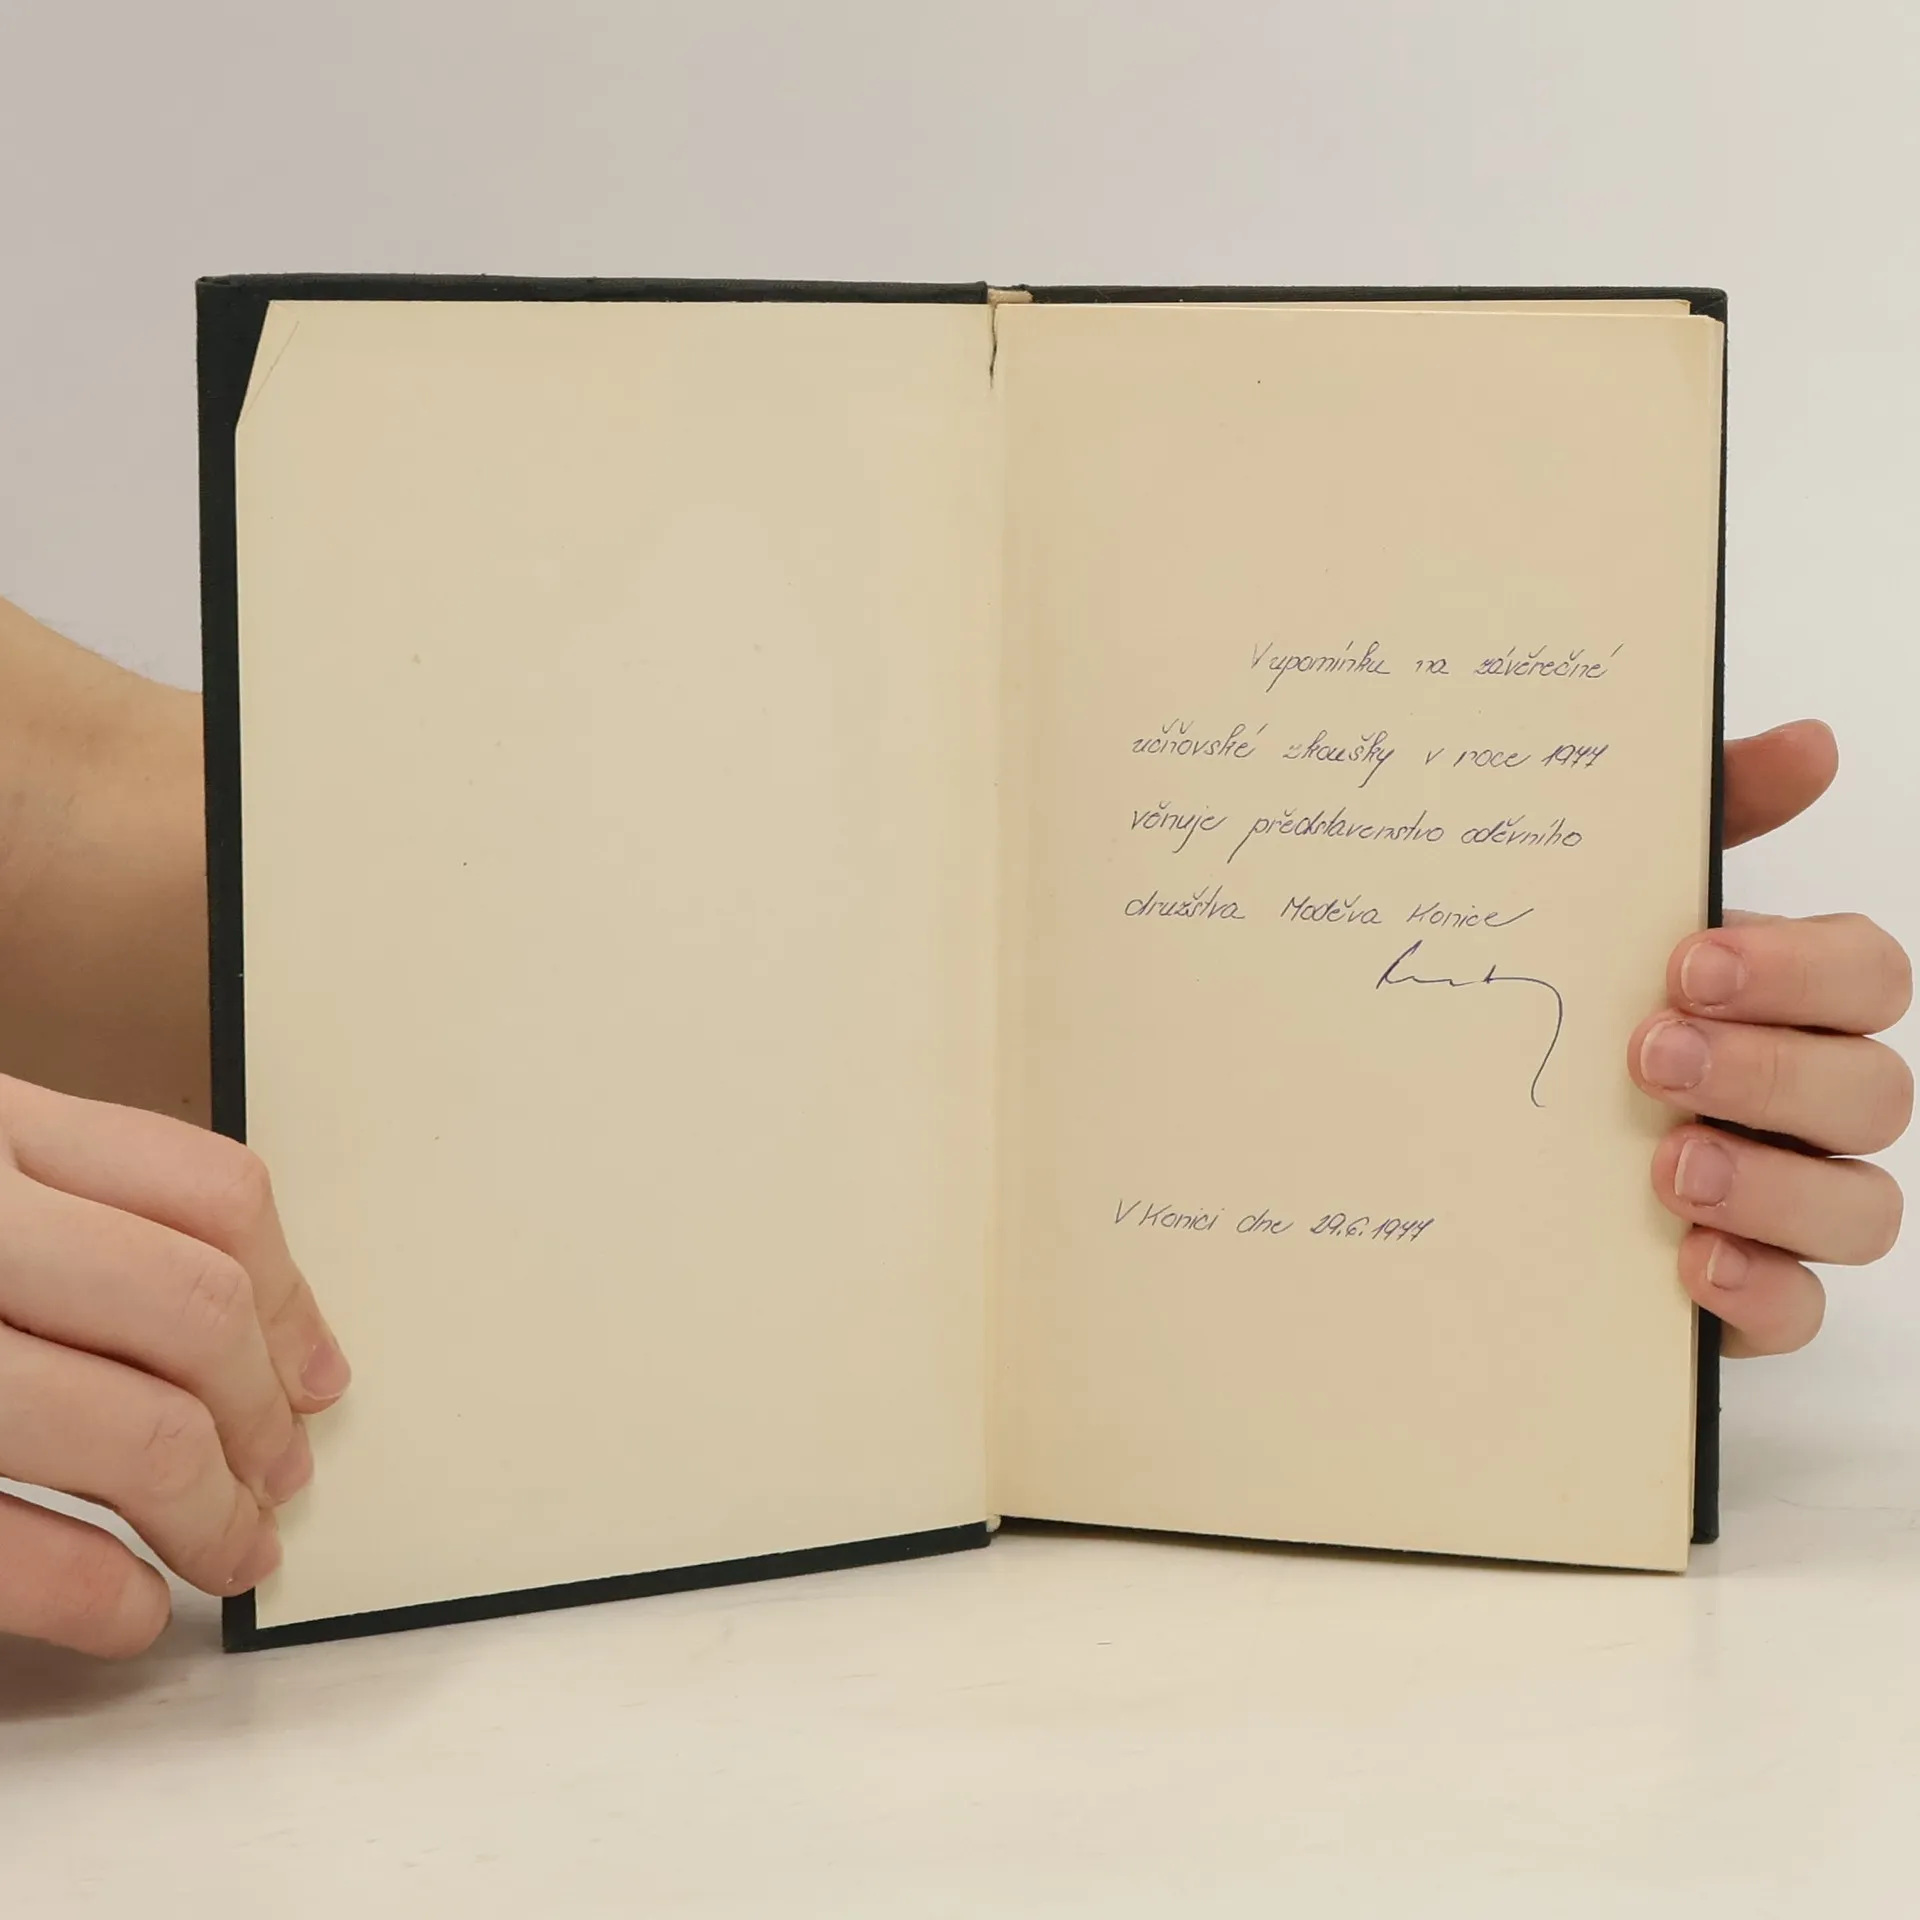 Vzpomínku na závěrečné
učňovské zkoušky v roce 1977
věnuje představenstvo oděvního
družstva Moděva Konice
V Konici dne 29.6.1977